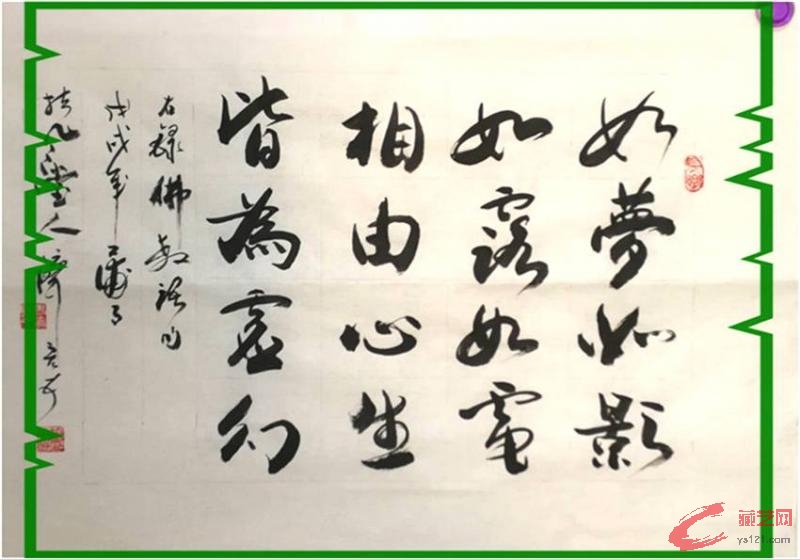 如夢如影
如露如電
相由心生
皆為虛幻
右錄佛教語句
戊戌年
人
藏艺网
ys121.com